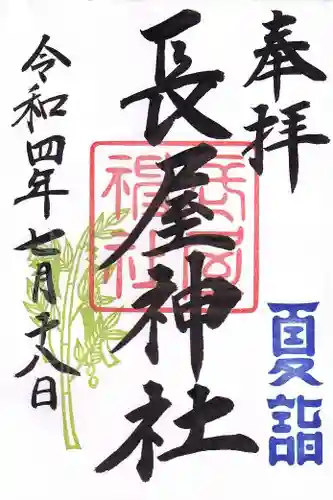 奉拝
夏詣
長屋神社
令和四年七月十八日